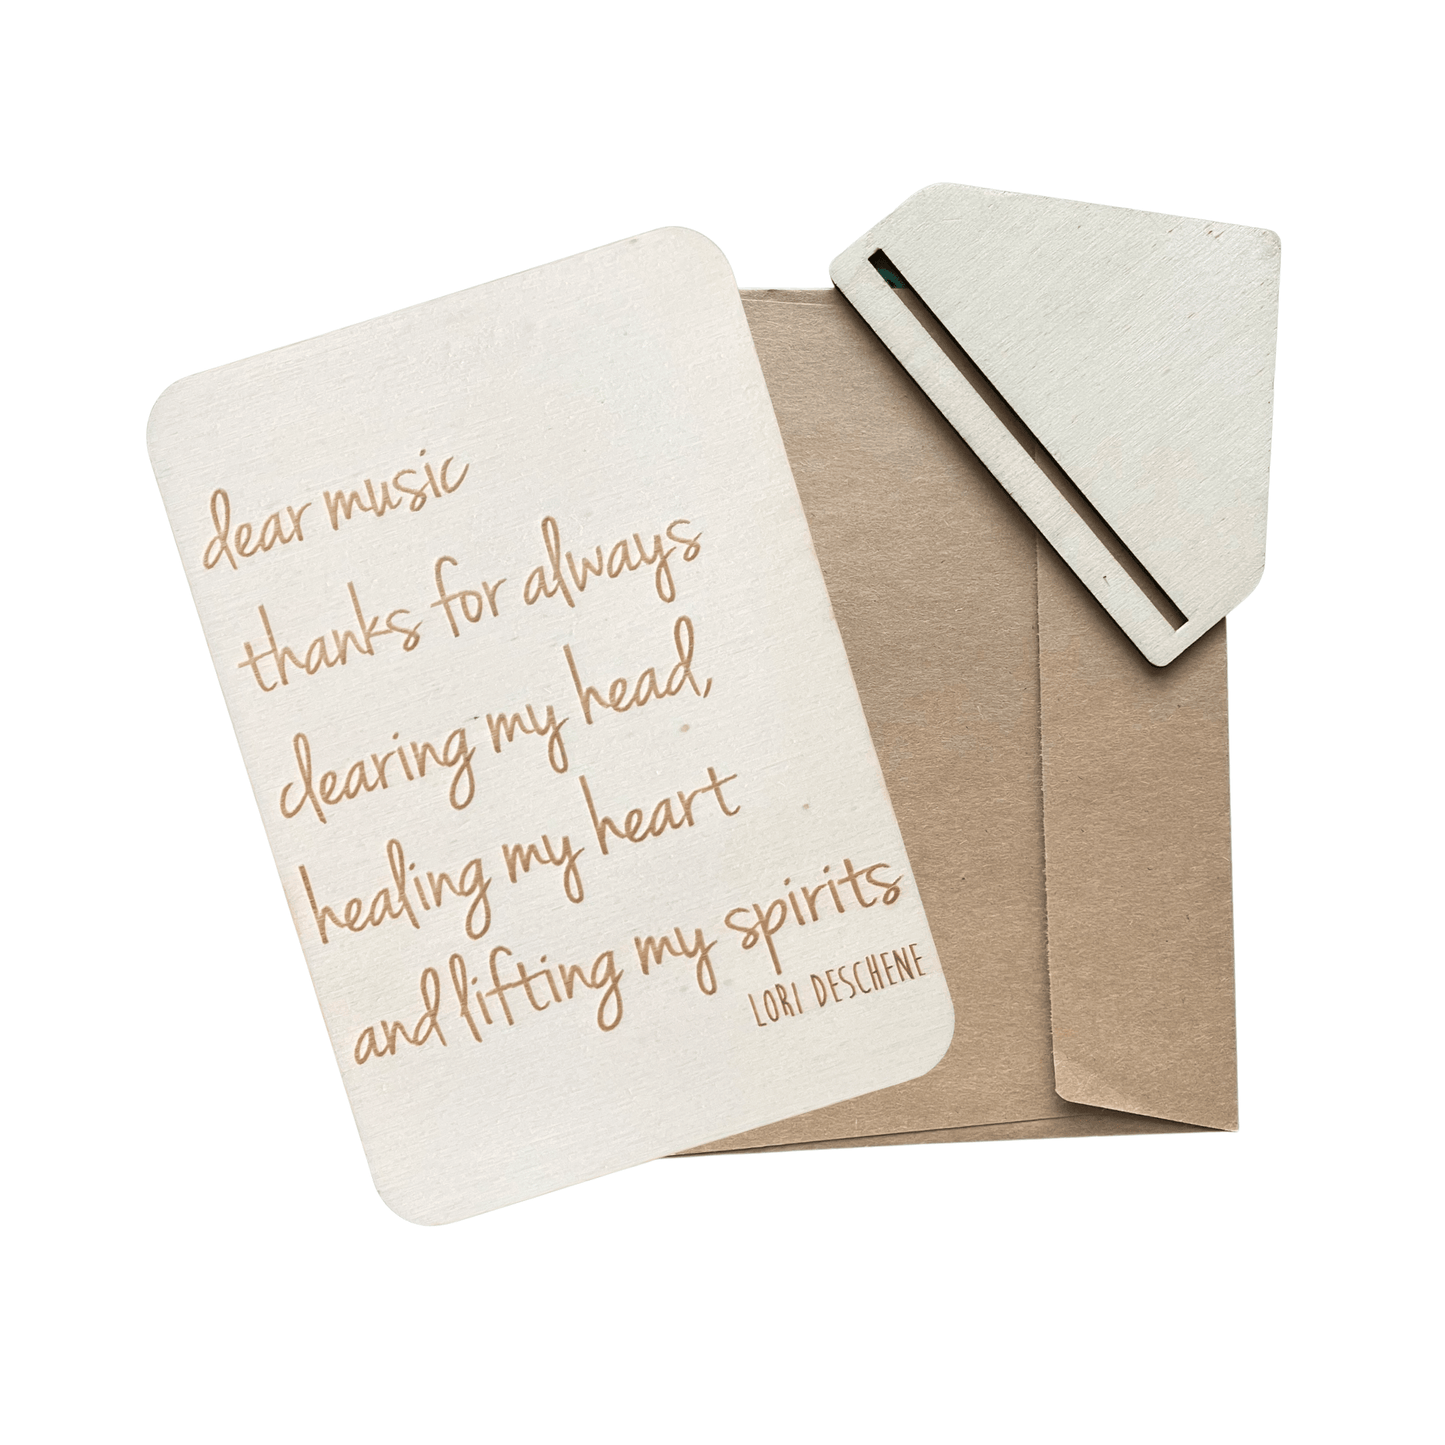 dear music
thanks for always
clearing my head,
healing my heart
and lifting my spirits
LORI DESCHENE